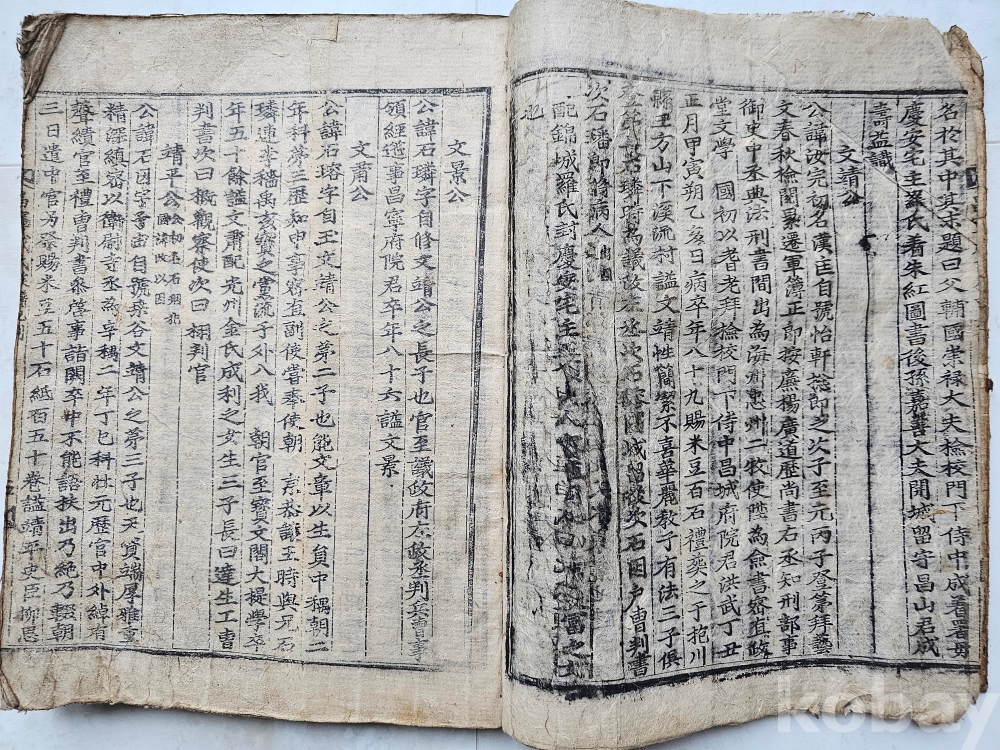 名於其中其末題曰父輔國崇祿大夫檢校門下侍中成着署母
慶安宅主羅氏看朱紅圖書後孫嘉善大夫開城留守昌山君成
壽益識
文靖公
公諱汝完初名漢生自號怡軒摠郎之次子至元丙子登第拜藝
文春秋檢閱累遷軍簿正郎按廉楊廣道歷尚書右丞知刑部事
御史中丞典法刑書間出為海州忠州二牧使陞為僉書密直政
堂文學 國初以耆老拜檢校門下侍中昌城府院君洪武丁丑
正月甲寅朔乙亥日病卒年八十九賜米豆百石禮葬之于抱川
縣王方山下溪流村謚文靖性簡潔不喜華麗教子有法三子俱
登第石璘府為議政左丞次石瑢開城留後次石因戶曹判書
次石璠郎將病人
配錦城羅氏封慶安宅主
文景公
公諱石璘字自修文靖公之長子也官至議政府左政丞判兵曹事
領經筵事昌寧府院君卒年八十六謚文景
文肅公
公諱石瑢字自玉文靖公之第二子也能文章以生員中禑朝二
年科第三歷知申事密直副使嘗奉使朝 京恭讓王時與兄石
璘連李穡禹玄寶之黨流于外入我 朝官至寶文閣大提學卒
年五十餘謚文肅配光州金氏成利之女生三子長曰達生工曹
判書次曰槪觀察使次曰栩判官
靖平公
公諱石因字
自號桑谷文靖公之第三子也天資端厚雅重
精深縝密以衛尉寺丞為辛禑二年丁巳科壯元歷官中外綽有
聲績官至禮曹判書參啓事詣闕卒中不能語扶出乃絶乃輟朝
三日遣中官乃祭賜米豆五十石紙百五十卷謚靖平史臣柳思
kobay